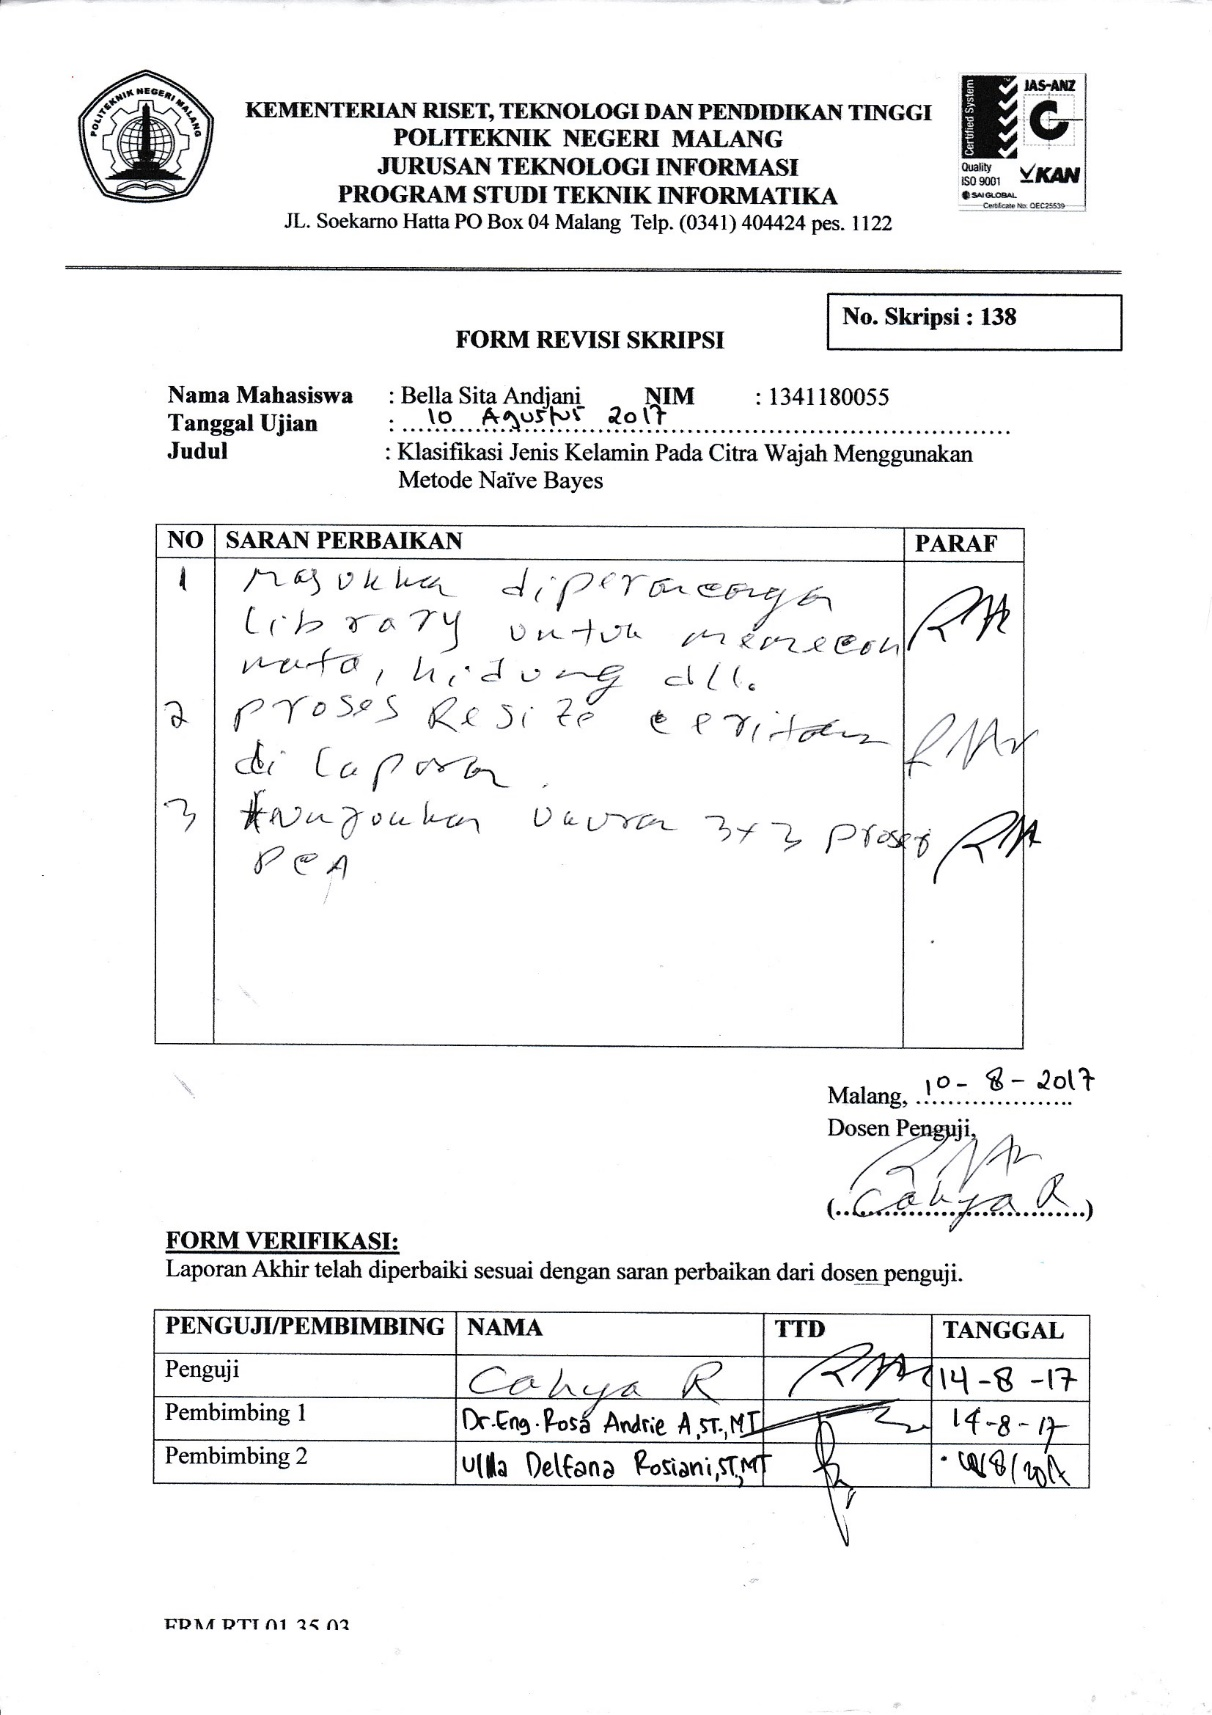 POLITEKNIK NEGERI MALANG
KEMENTERIAN RISET, TEKNOLOGI DAN PENDIDIKAN TINGGI
POLITEKNIK NEGERI MALANG
JURUSAN TEKNOLOGI INFORMASI
PROGRAM STUDI TEKNIK INFORMATIKA
JL. Soekarno Hatta PO Box 04 Malang Telp. (0341) 404424 pes. 1122
Certified System
JAS-ANZ
Quality
ISO 9001
KAN
SAI GLOBAL
Certificate No: QEC25539
No. Skripsi : 138
FORM REVISI SKRIPSI
Nama Mahasiswa : Bella Sita Andjani NIM : 1341180055
Tanggal Ujian : 10 Agustus 2017
Judul : Klasifikasi Jenis Kelamin Pada Citra Wajah Menggunakan
Metode Naïve Bayes
NO SARAN PERBAIKAN PARAF
1 Masukkan diperancangan
library untuk
mata, hidung dll.
2 Proses Resize ceritakan
di laporan
3 ukuran 3x3 proses
PCA
Malang, 10-8-2017
Dosen Penguji,
(Cahya R)
FORM VERIFIKASI:
Laporan Akhir telah diperbaiki sesuai dengan saran perbaikan dari dosen penguji.
PENGUJI/PEMBIMBING NAMA TTD TANGGAL
Penguji Cahya R 14-8-17
Pembimbing 1 Dr.Eng.Rosa Andrie A,ST.,MT 14-8-17
Pembimbing 2 Ulla Delfana Rosiani,ST,MT
FRM.RTI.01.35.03